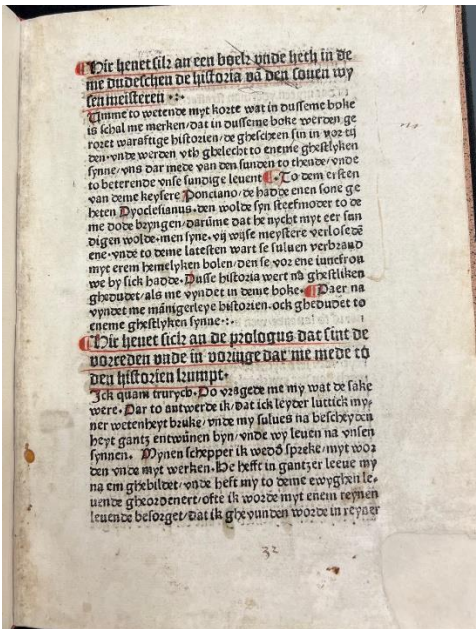 Hir heuet sik an een boek vnde heth in de
me dudeschen de historia vā den souen wy
sen meisteren
Umme to wetende myt korte wat in dusseme boke
is schal me merken/dat in dusseme boke werden ge
roret waraftige historien/de ghescheen sin in vor tij
den·vnde werden vth ghelecht to eneme ghestlyken
synne/vns dar mede van den sunden to thende/vnde
to beterende vnse sundige leuent To dem ersten
van deme keysere Ponciano/de hadde enen sone ge
heten Dyoclesianus·den wolde syn steefmoder to de
me dode bryngen/darūme dat he nycht myt eer sun
digen wolde·men syne·vij wijse meystere verlosedē
ene·vnde to deme latesten wart se suluen verbrand
myt erem hemelyken bolen/den se vor ene iuncfrou
we by sick hadde·Dusse historia wert na ghestliken
ghedudet/als me vyndet in deme boke· Daer na
vyndet me mānigerleye historien·ock ghedudet to
eneme ghestlyken synne·:·
Hir heuet sick an de prologus dat sint de
vorreden vnde in voringe dar me mede to
den historien kumpt·
Ick quam trurych·Do vragede me my wat de sake
were·Dar to antwerde ik/dat ick leyder luttick my
ner wetenheyt bruke/vnde my sulues na bescheyden
heyt gantz entwūnen byn/vnde wy leuen na vnsen
synnen· Mynen schepper ik wedd spreke/myt wor
den vnde myt werken·He hefft in gantzer leeue my
na em ghebildet/vnde heft my to deme ewyghen le
uende gheordenert/ofte ik worde myt enem reynen
leuende besorget/dat ik gheuunden worde in reyner
32